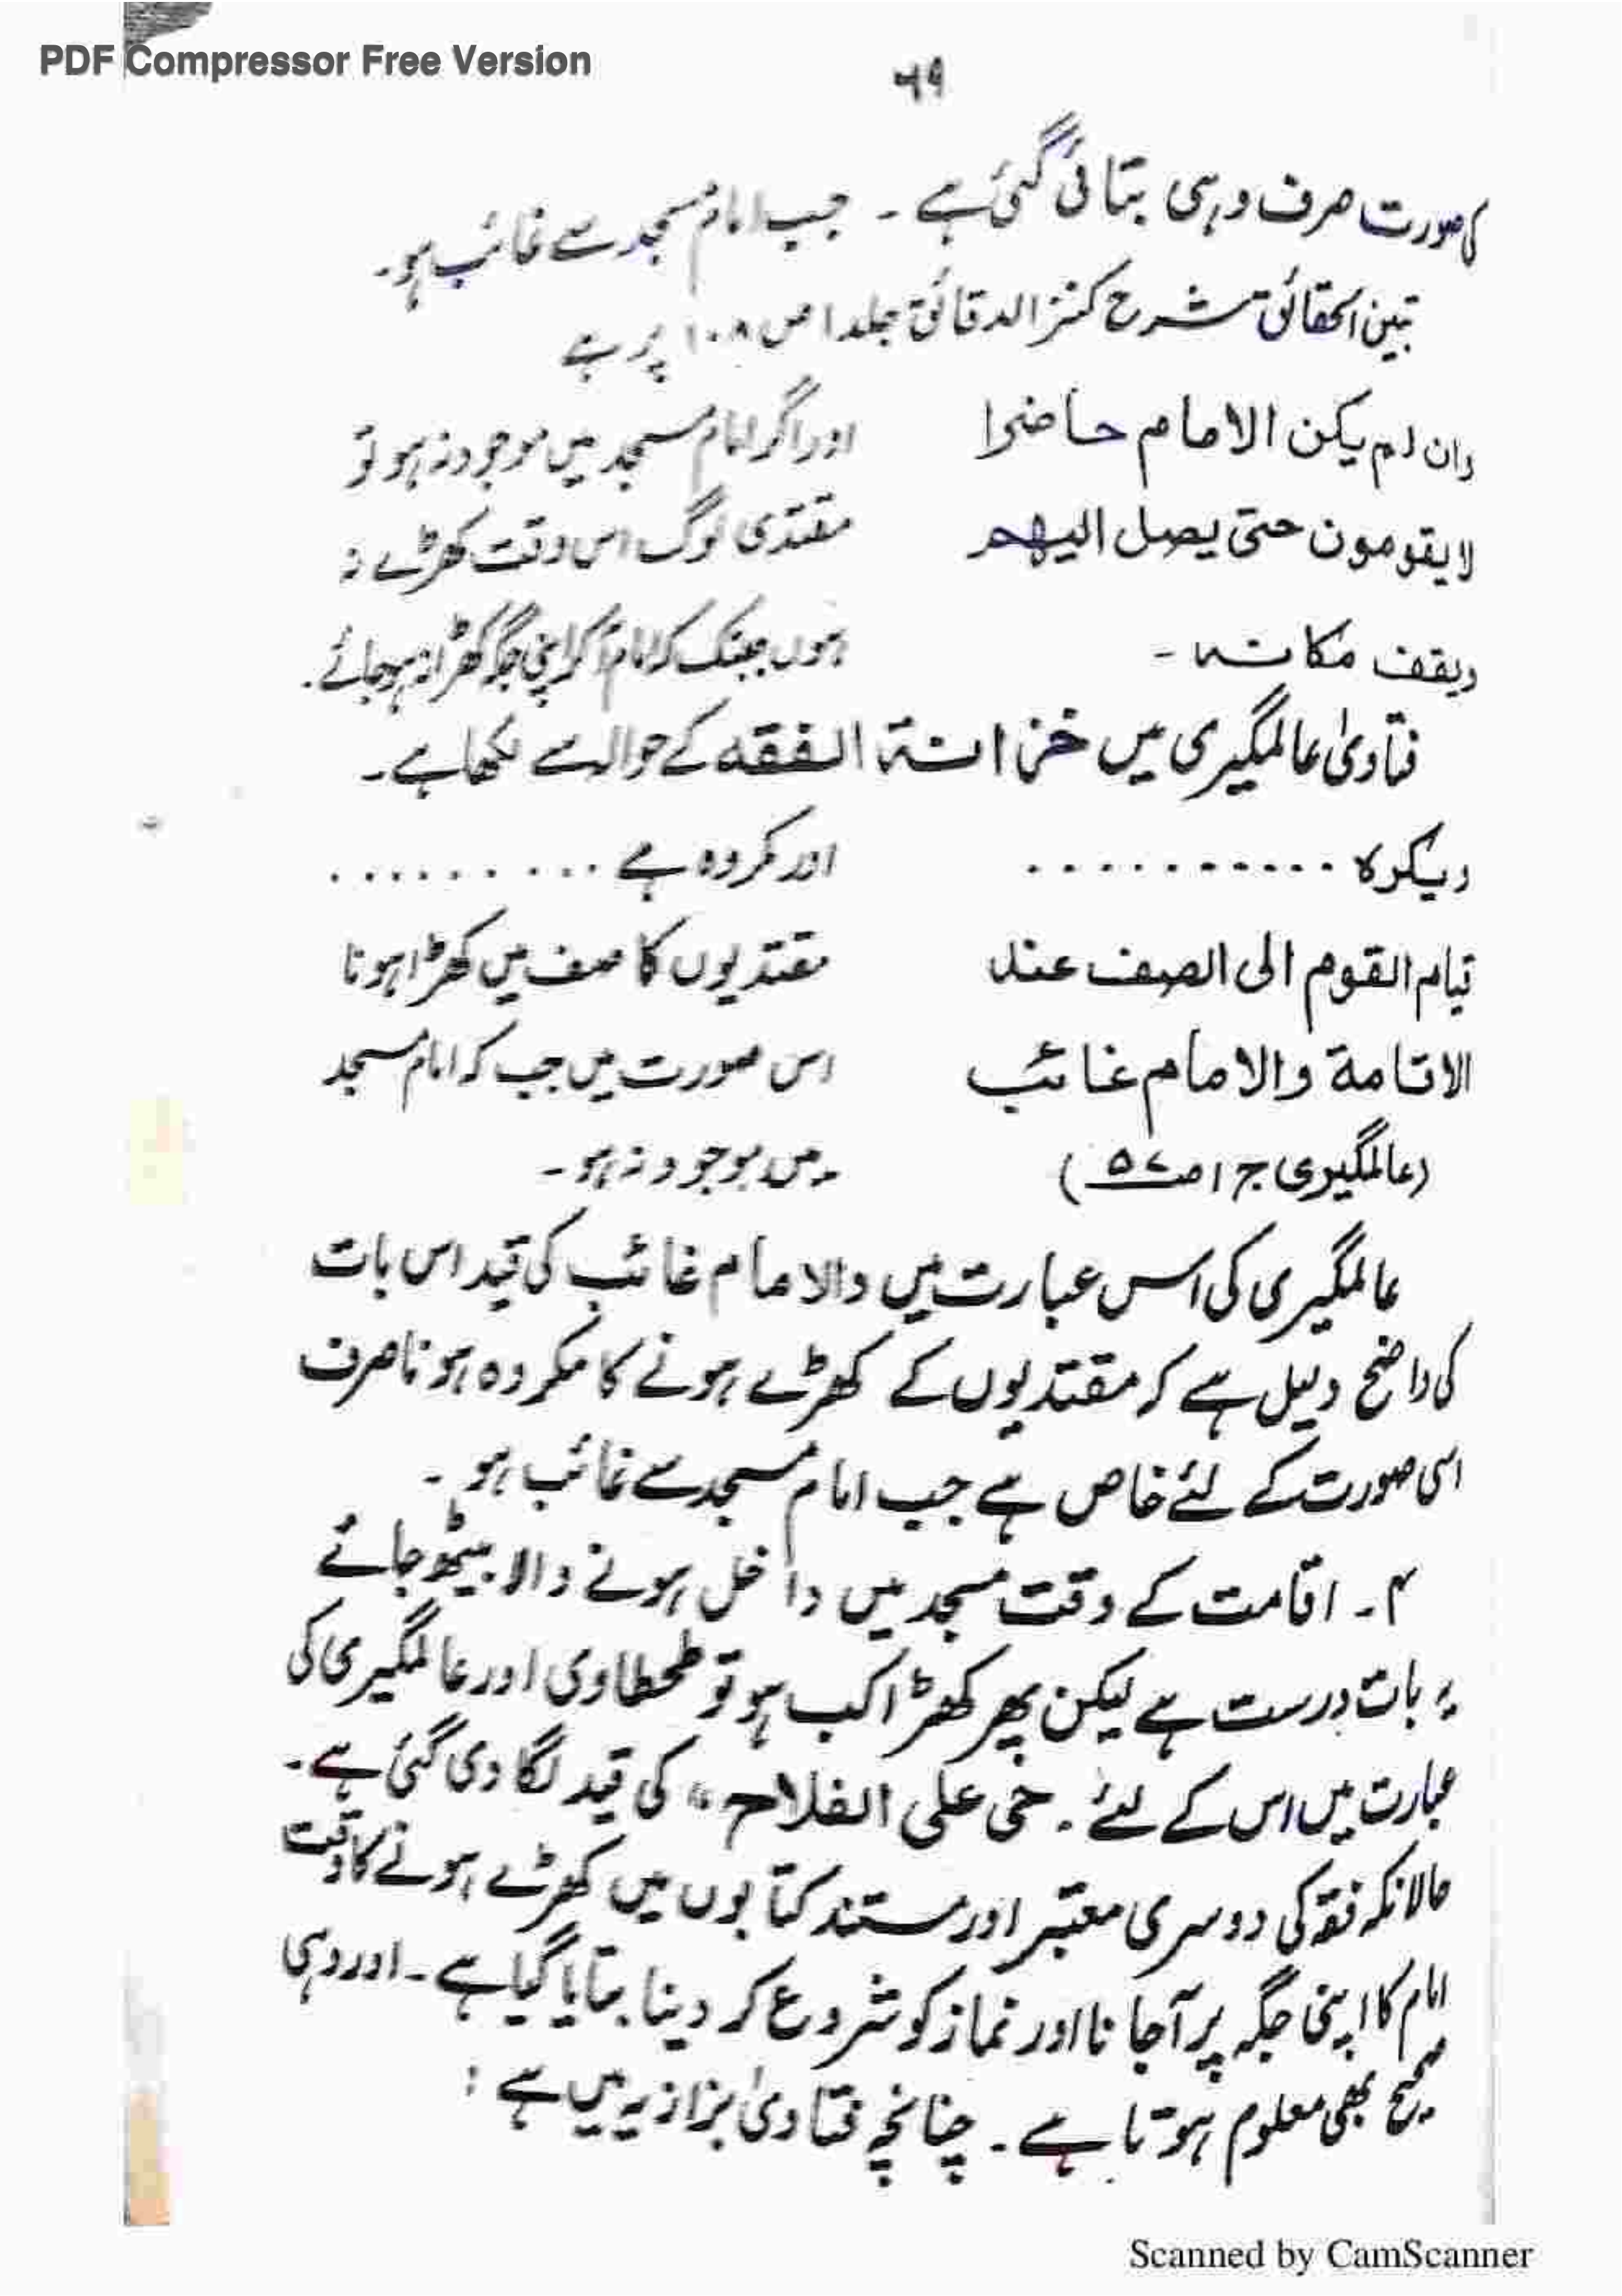 PDF Compressor Free Version
۶۹
کی صورت صرف وہی بتائی گئی ہے ۔ جب امام مسجد سے غائب ہو۔
تبین الحقائق شرح کنز الدقائق جلد ۱ ص ۱۰۸ پر ہے
وان لم یکن الامام حاضرا
لا یقومون حتی یصل الیھم
ویقف مکانہ ۔
اور اگر امام مسجد میں موجود نہ ہو تو
مقتدی لوگ اس وقت کھڑے نہ
ہوں جبتک کہ امام آکر اپنی جگہ کھڑا نہ ہوجائے.
فتاویٰ عالمگیری میں خزانۃ الفقہ کے حوالے سے لکھا ہے ۔
ویکرہ ...........
قیام القوم الی الصف عند
الاقامۃ والامام غائب
(عالمگیری ج ۱ ص ۵۷)
اور مکروہ ہے ..........
مقتدیوں کا صف میں کھڑا ہونا
اس صورت میں جب کہ امام مسجد
میں موجود نہ ہو ۔
عالمگیری کی اس عبارت میں والامام غائب کی قید اس بات
کی واضح دلیل ہے کہ مقتدیوں کے کھڑے ہونے کا مکروہ ہونا صرف
اسی صورت کے لئے خاص ہے جب امام مسجد سے غائب ہو ۔
۴ ۔ اقامت کے وقت مسجد میں داخل ہونے والا بیٹھ جائے
یہ بات درست ہے لیکن پھر کھڑا کب ہو تو طحطاوی اور عالمگیری کی
عبارت میں اس کے لئے . حی علی الفلاح “ کی قید لگا دی گئی ہے ۔
حالانکہ فقہ کی دوسری معتبر اور مستند کتابوں میں کھڑے ہونے کا وقت
امام کا اپنی جگہ پر آجانا اور نماز کو شروع کر دینا بتایا گیا ہے ۔ اور وہی
صحیح بھی معلوم ہوتا ہے ۔ چنانچہ فتاویٰ بزازیہ میں ہے :
Scanned by CamScanner